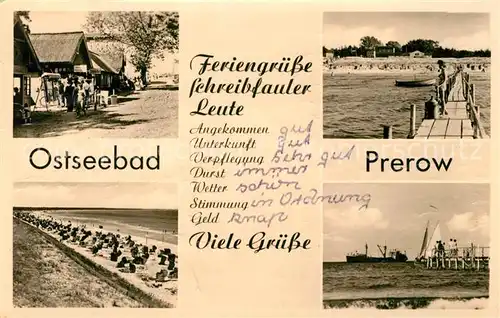 Feriengrüße
schreibfauler
Leute
Angekommen gut
Unterkunft gut
Verpflegung sehr gut
Durst immer
Wetter schön
Stimmung in Ordnung
Geld knap
Viele Grüße
Ostseebad
Prerow